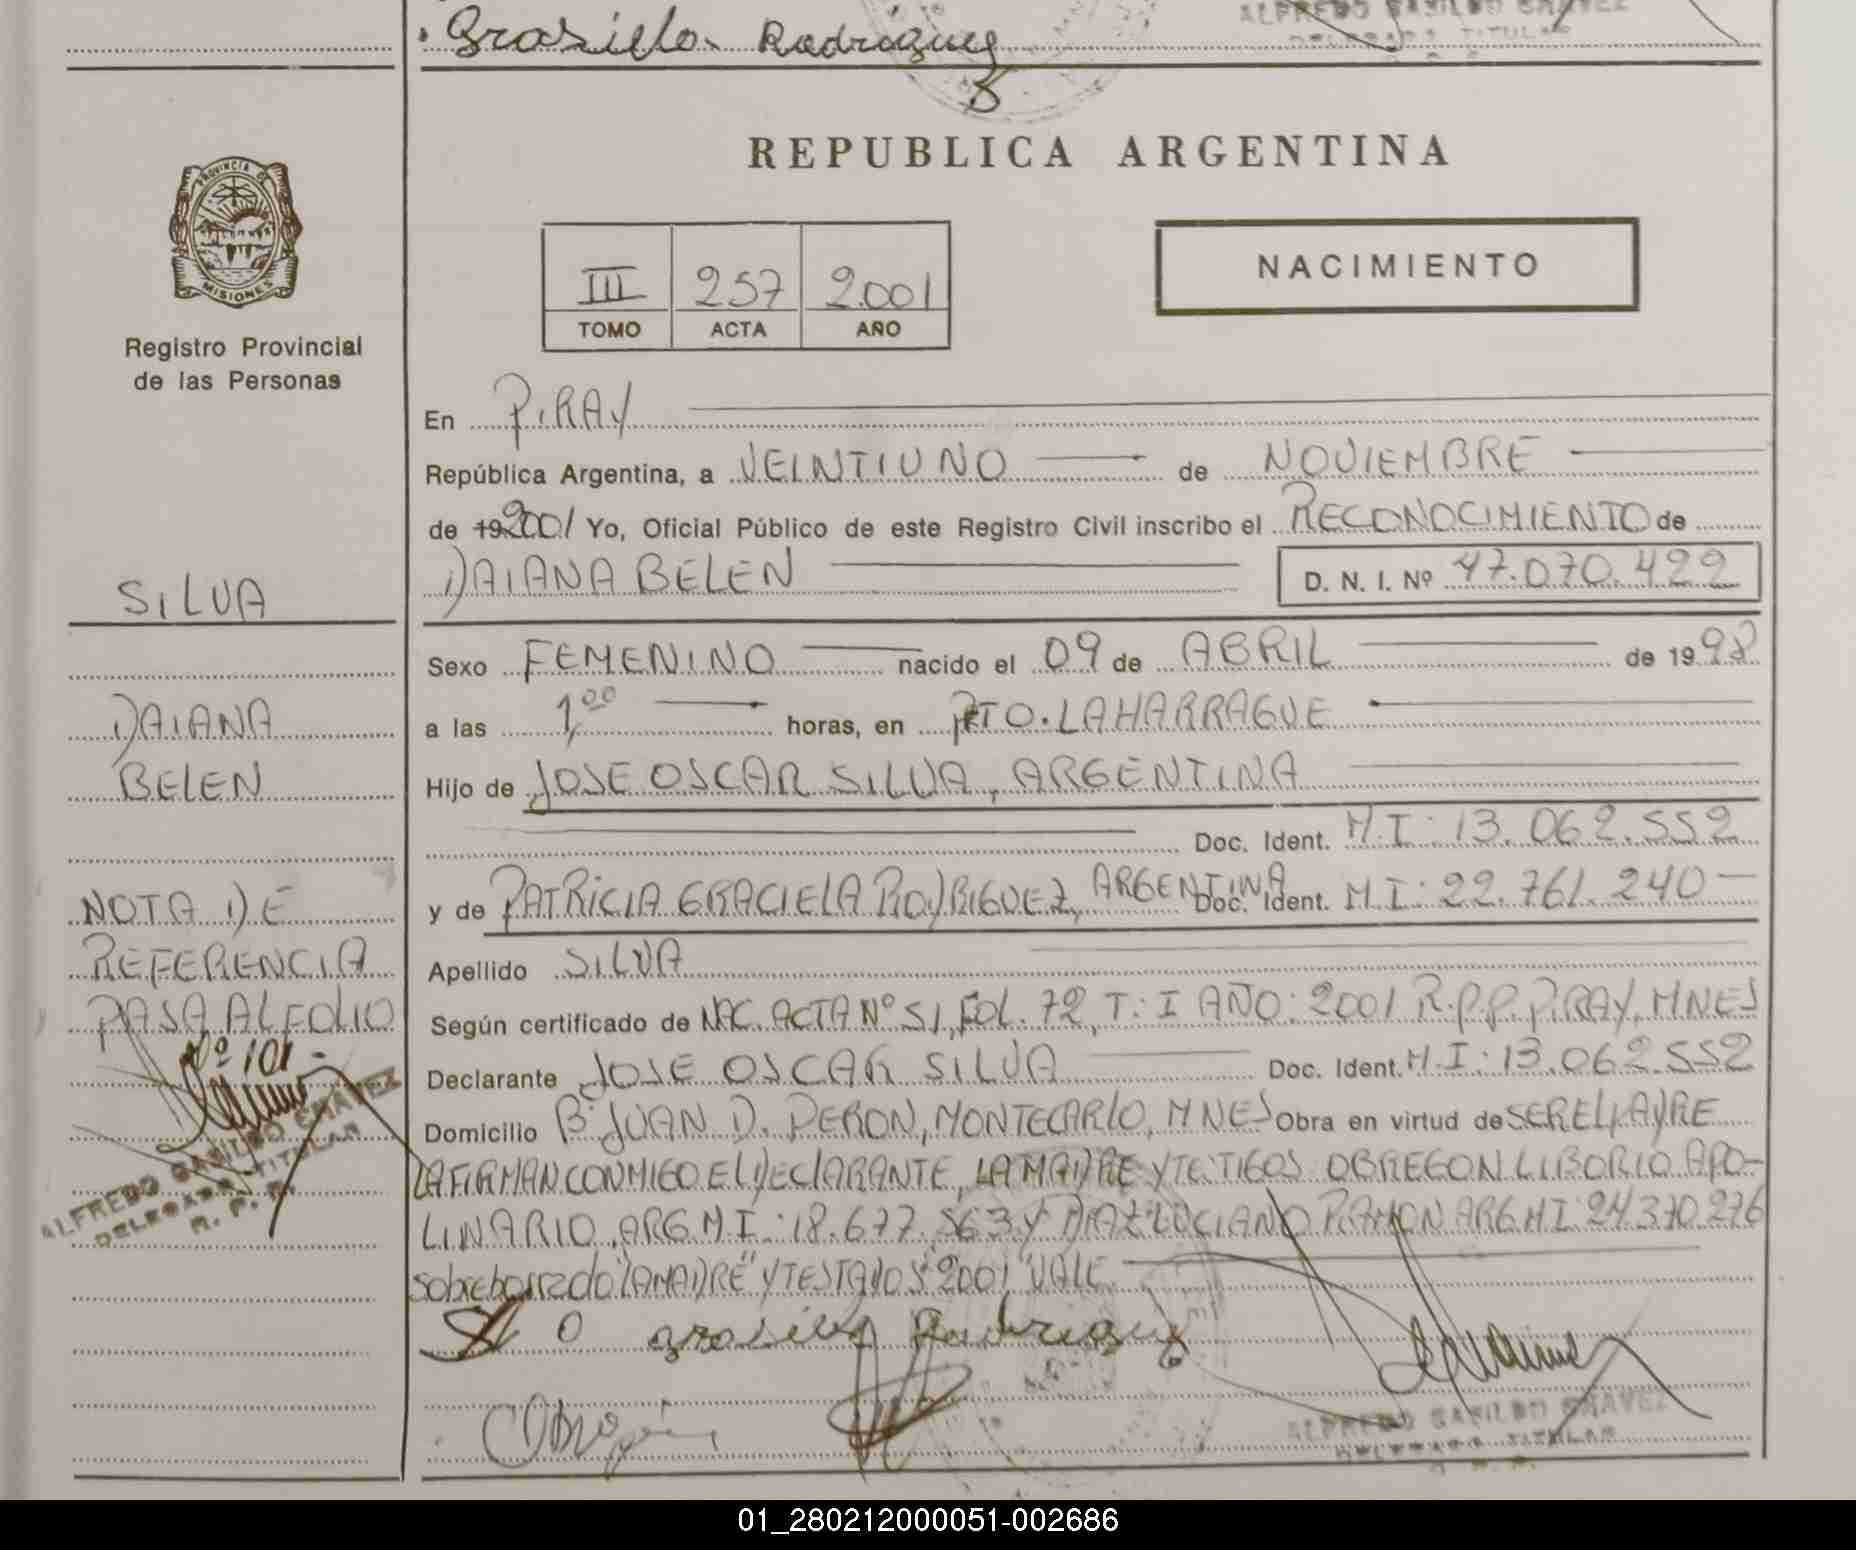 Grasiela Rodriguez
ALFREDO BASILDO CHAVEZ
DELEGADO TITULAR
REPUBLICA ARGENTINA
PROVINCIA DE
MISIONES
Registro Provincial
de las Personas
III 257 2.001
TOMO ACTA AÑO
NACIMIENTO
En PIRAY
República Argentina, a VEINTIUNO de NOVIEMBRE
de 19 2001 Yo, Oficial Público de este Registro Civil inscribo el RECONOCIMIENTO de
DAIANA BELEN D. N. I. Nº 47.070.422
SILVA
Sexo FEMENINO nacido el 09 de ABRIL de 1998
DAIANA
a las 1,00 horas, en PTO. LAHARRAGUE
BELEN
Hijo de JOSE OSCAR SILVA, ARGENTINA
Doc. Ident. M.I: 13.062.552
NOTA DE
y de PATRICIA GRACIELA RODRIGUEZ, ARGENTINA Doc. Ident. M.I: 22.761.240
REFERENCIA
Apellido SILVA
PASA AL FOLIO
Según certificado de NAC. ACTA Nº 51, FOL. 72, T: I AÑO: 2001 R.P.P. PIRAY, MNES
Nº 101
Declarante JOSE OSCAR SILVA Doc. Ident. M.I: 13.062.552
Domicilio Bº JUAN D. PERON, MONTECARLO, MNES Obra en virtud de SER EL PADRE
ALFREDO BASILDO CHAVEZ
DELEGADO TITULAR
R. P. P.
LA FIRMAN CONMIGO EL DECLARANTE, LA MADRE Y TESTIGOS OBREGON LIBORIO APO-
LINARIO, ARG. M.I.: 18.677.563 Y DIAZ LUCIANO RAMON ARG. M.I: 24.370.276
sobreborrado "LA MADRE" Y TESTADOS "2001" VALE
S O Grasiela Rodriguez
Obregon
ALFREDO BASILDO CHAVEZ
DELEGADO TITULAR
R. P. P.
01_280212000051-002686